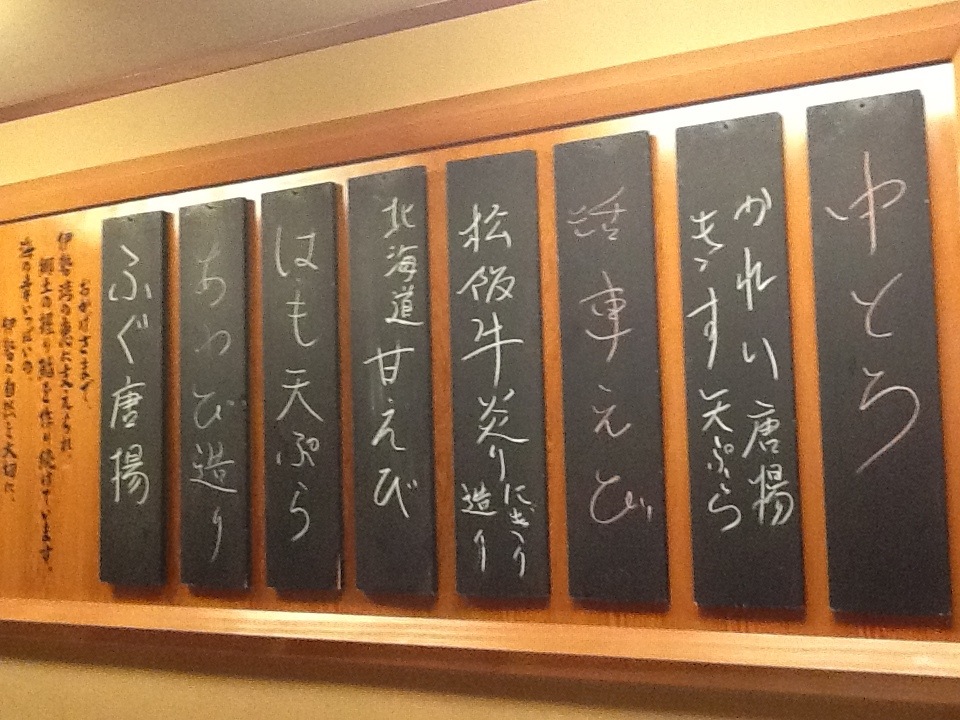 中とろ
かれい唐揚
きす天ぷら
活車えび
松阪牛炙り
にぎり
造り
北海道甘えび
はも天ぷら
あわび造り
ふぐ唐揚
おかげさまで、
伊勢湾の恵に支えられ、
郷土の握り鮨を作り続けています。
海の幸いっぱいの
伊勢の自然を大切に、